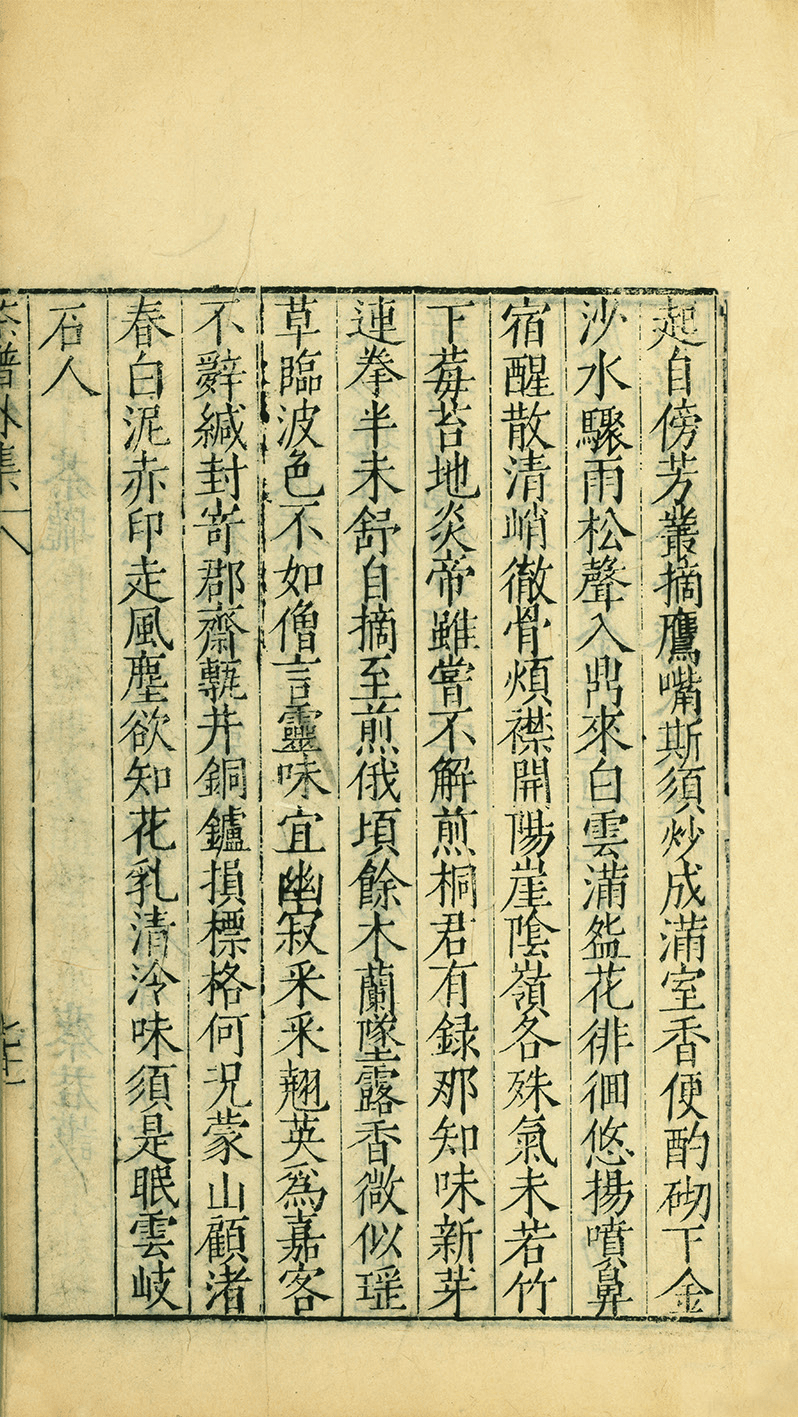 起自傍芳叢摘鷹嘴斯須炒成滿室香便酌砌下金
沙水驟雨松聲入鼎來白雲滿盌花徘徊悠揚噴鼻
宿醒散清峭徹骨煩襟開陽崖陰嶺各殊氣未若竹
下莓苔地炎帝雖嘗不解煎桐君有録那知味新芽
連拳半未舒自摘至煎俄頃餘木蘭墜露香微似瑶
草臨波色不如僧言靈味宜幽寂采采翹英爲嘉客
不辭緘封寄郡齋甎井銅鑪損標格何况蒙山顧渚
春白泥赤印走風塵欲知花乳清泠味須是眠雲岐
石人
茶譜外集